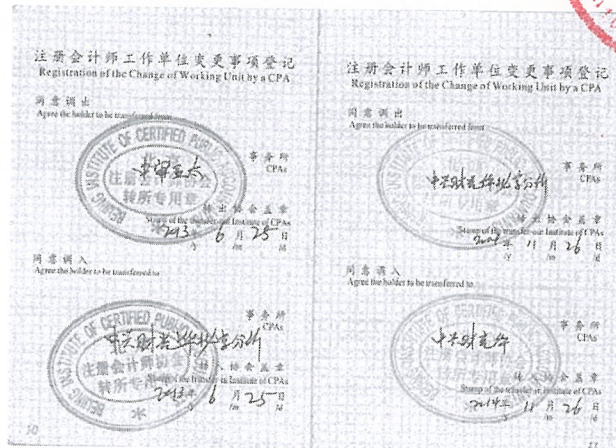 注册会计师工作单位变更事项登记
Registration of the Change of Working Unit by a CPA
同意调出
Agree the holder to be transferred from
事务所
CPAs
BEIJING INSTITUTE OF CERTIFIED PUBLIC
注册会计师协会
转所专用章
转出协会盖章
Stamp of the transfer-out Institute of CPAs
2013年 6月25日
/y /m /d
同意调入
Agree the holder to be transferred to
中兴财光华北京分所
事务所
CPAs
BEIJING INSTITUTE OF CERTIFIED PUBLIC
注册会计师协会
转所专用章
转入协会盖章
Stamp of the transfer-in Institute of CPAs
2013年 6月25日
/y /m /d
10
注册会计师工作单位变更事项登记
Registration of the Change of Working Unit by a CPA
同意调出
Agree the holder to be transferred from
中兴财光华北京分所
事务所
CPAs
转出协会盖章
Stamp of the transfer-out Institute of CPAs
年 11月26日
/y /m /d
同意调入
Agree the holder to be transferred to
中兴财光华
事务所
CPAs
转入协会盖章
Stamp of the transfer-in Institute of CPAs
2014年 11月26日
/y /m /d
11